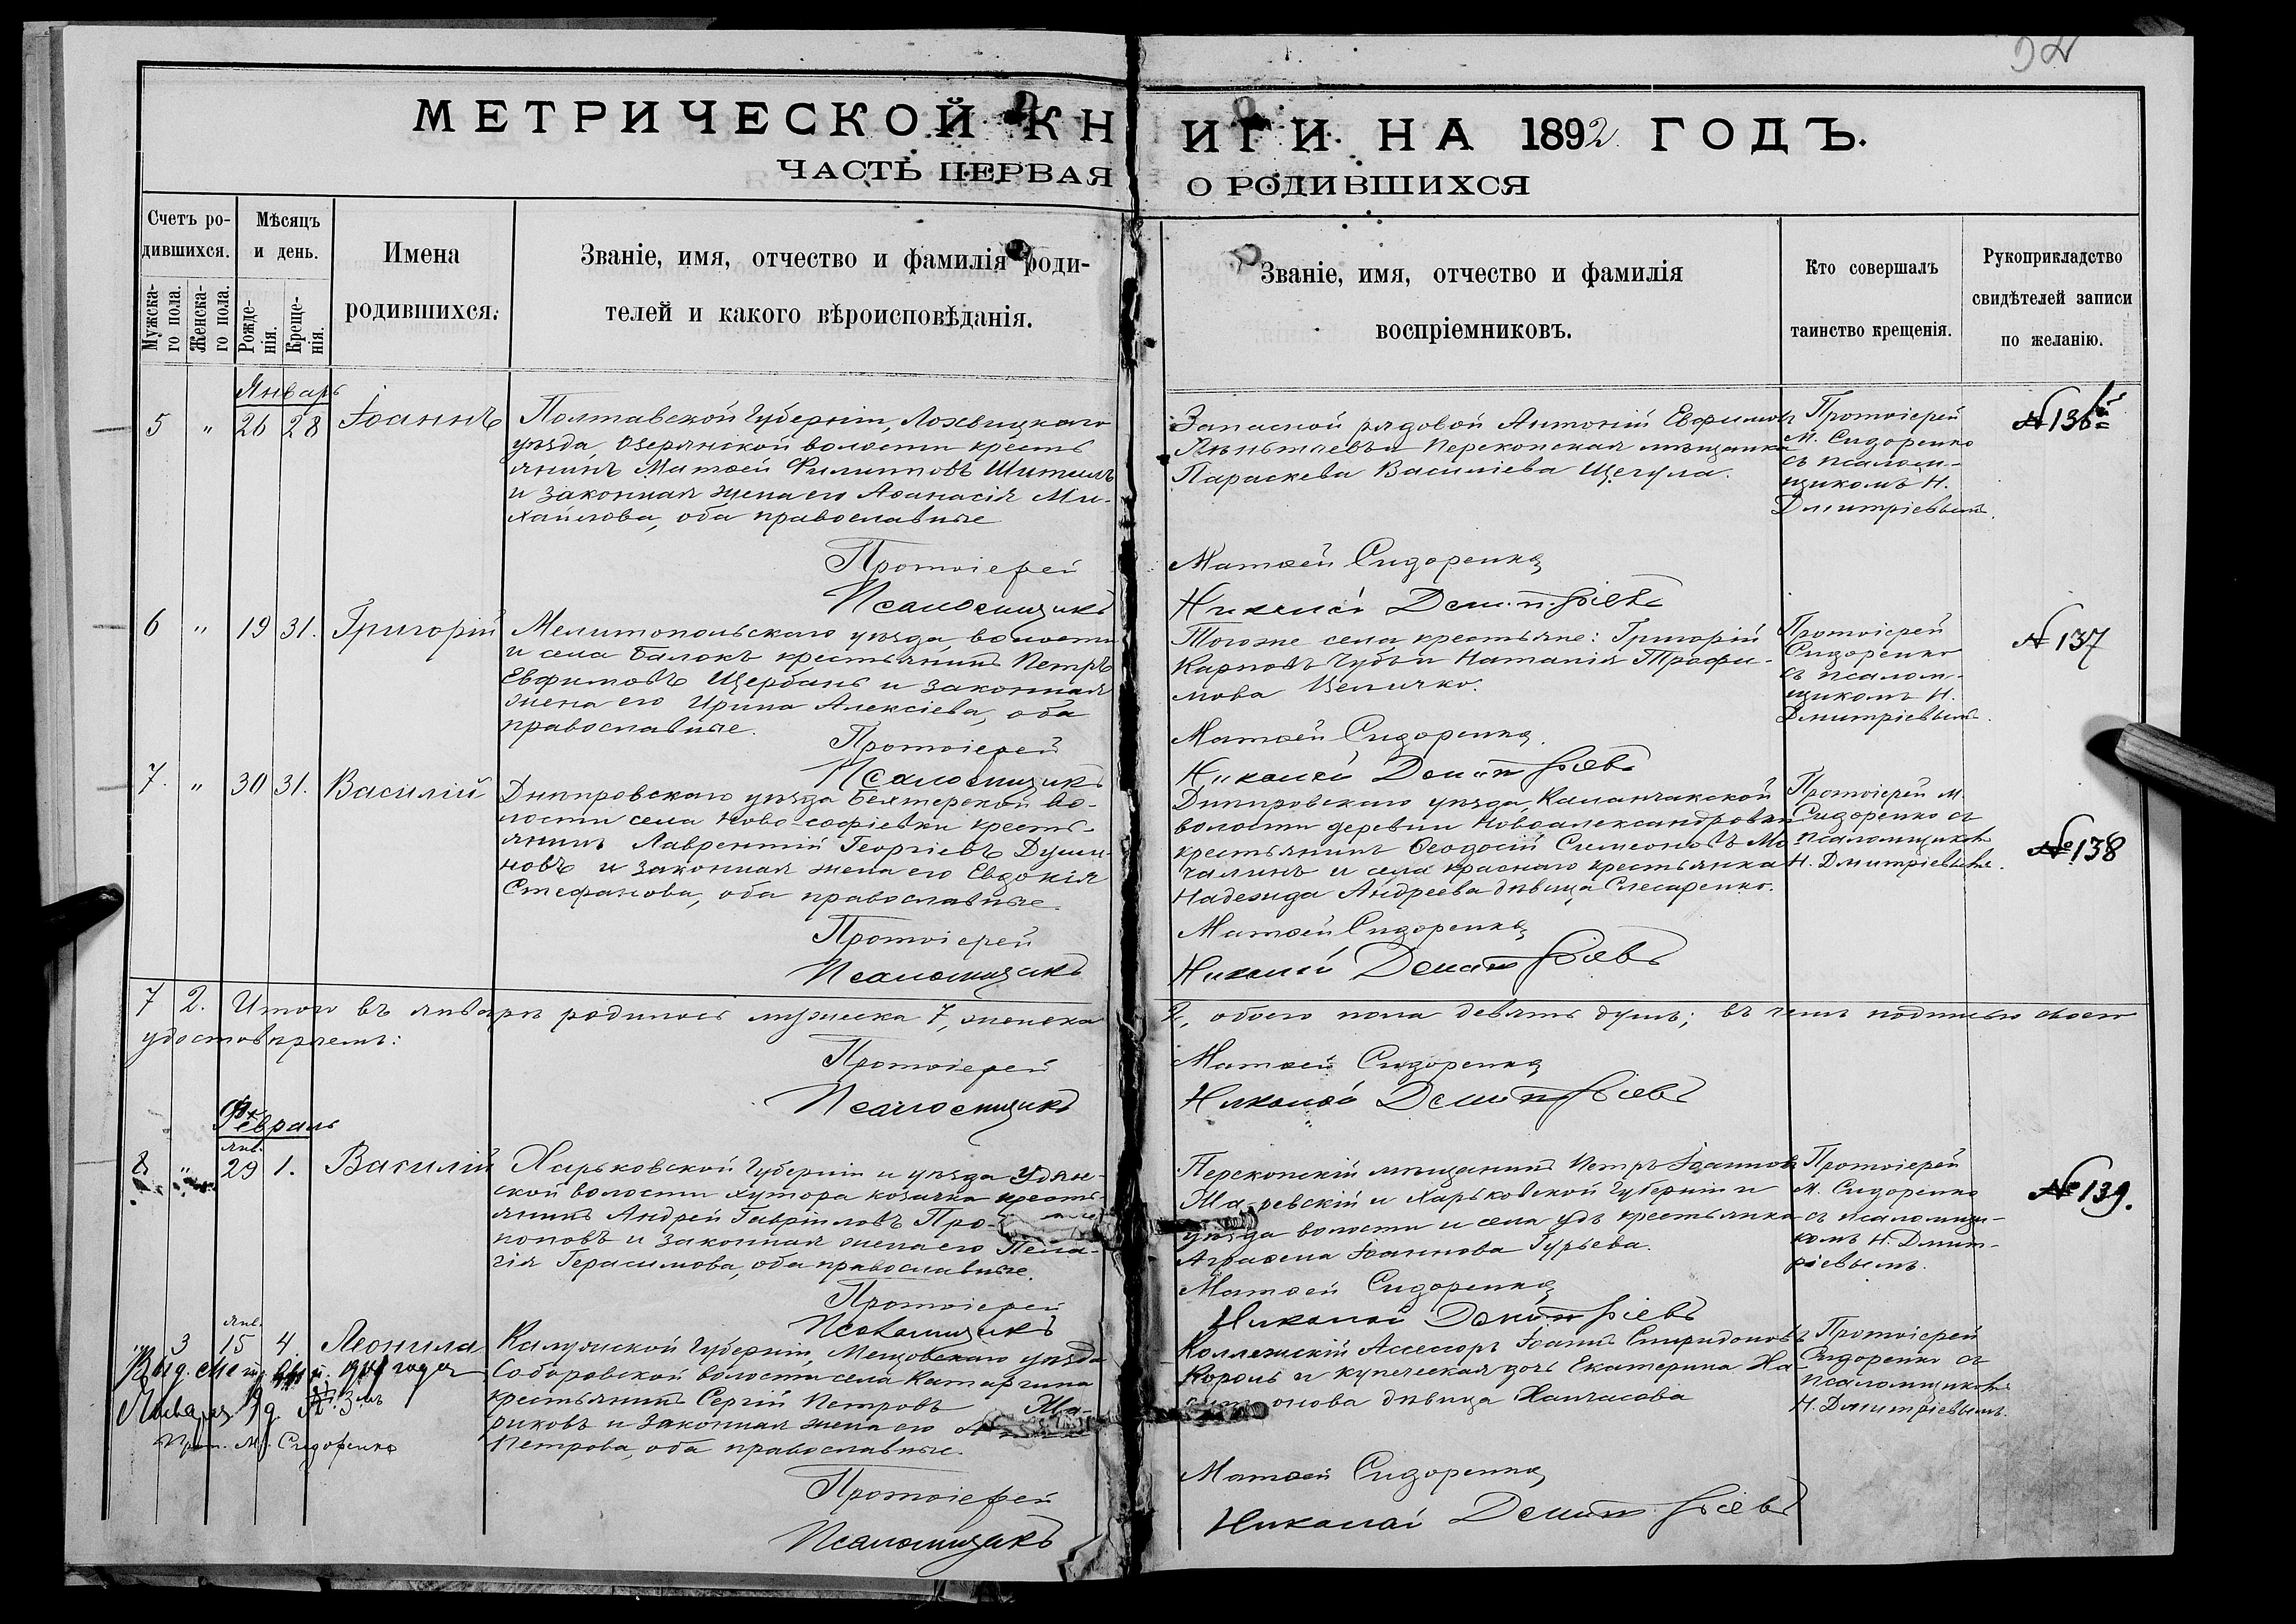 МЕТРИЧЕСКОЙ КНИГИ НА 1892 ГОДЪ.
ЧАСТЬ ПЕРВАЯ О РОДИВШИХСЯ
Счетъ ро-
дившихся.
Мужска-
го пола.
Женска-
го пола.
Мѣсяцъ
и день.
Рожде-
нія.
Креще-
нія.
Имена
родившихся.
Званіе, имя, отчество и фамилія роди-
телей и какого вѣроисповѣданія.
Званіе, имя, отчество и фамилія
воспріемниковъ.
Кто совершалъ
таинство крещенія.
Рукоприкладство
свидѣтелей записи
по желанію.
Январь
5 " 26 28 Іоаннъ
Полтавской Губерніи, Лохвицкаго
уѣзда, Озерянской волости кресть
янинъ Матѳей Филипповъ
и законная жена его Аѳанасія Ми-
хайлова, оба православные
Запасной рядовой Антоній Евфимовъ
Перекопская мѣщанка
Параскева Василіева Щегула.
Протоіерей
М. Сидоренко
съ псалом-
щикомъ Н.
Дмитріевымъ.
№ 136
Протоіерей Матѳей Сидоренко
Псаломщикъ Николай Дмитріевъ
6 " 19 31. Григорій
Мелитопольскаго уѣзда, волости
и села Балокъ крестьянинъ Петръ
Евфимовъ Щербань и законная
жена его Ирина Алексіева, оба
православные.
Тогоже села крестьяне: Григорій
Карповъ Чубъ и Наталія Трофи-
мова
Протоіерей
Сидоренко
съ псалом-
щикомъ Н.
Дмитріевымъ.
№ 137
Протоіерей Матѳей Сидоренко
Псаломщикъ Николай Дмитріевъ
7. " 30 31. Василій
Днѣпровскаго уѣзда Бехтерской во-
лости села Ново-софіевки кресть-
янинъ Лаврентій Георгіевъ
и законная жена его Евдокія
Стефанова, оба православные.
Днѣпровскаго уѣзда, Каланчакской
волости деревни Новоалександровки
крестьянинъ Ѳеодосій Симеоновъ Мо-
чалинъ и села краснаго крестьянка
Надежда Андреева дѣвица Слесаренко.
Протоіерей М.
Сидоренко съ
псаломщикомъ
Н. Дмитріевымъ.
№ 138
Протоіерей Матѳей Сидоренко
Псаломщикъ Николай Дмитріевъ
7 2. Итого въ январѣ родилось мужеска 7, женска 2, обоего пола девять душъ; въ чемъ подписью своею
удостовѣряемъ:
Протоіерей Матѳей Сидоренко
Псаломщикъ Николай Дмитріевъ
Февраль
янв.
8 " 29 1. Василій
Харьковской Губерніи и уѣзда Удян-
ской волости хутора козачка кресть
янинъ Андрей Гавріиловъ Про-
поповъ и законная жена его Пела-
гія Герасимова, оба православные.
Перекопскій мѣщанинъ Петръ Іоанновъ
и Харьковской Губерніи и
уѣзда волости и села Удъ крестьянка
Агрипена Іоаннова Гурьева.
Протоіерей
М. Сидоренко
съ псаломщи-
комъ Н. Дмит-
ріевымъ.
№ 139.
Протоіерей Матѳей Сидоренко
Псаломщикъ Николай Дмитріевъ
янв.
" 3 15 4. Леонила
Выд. мет. года
Прот. М. Сидоренко
Калужской Губерніи, Мещовскаго уѣзда
Соборовской волости села
крестьянинъ Сергій Петровъ
и законная жена его
Петрова, оба православные.
Коллежскій Ассесоръ Іоаннъ Спиридоновъ
Король и купеческая дочь Екатерина
дѣвица
Протоіерей
Сидоренко съ
псаломщикомъ
Н. Дмитріевымъ.
Протоіерей Матѳей Сидоренко
Псаломщикъ Николай Дмитріевъ